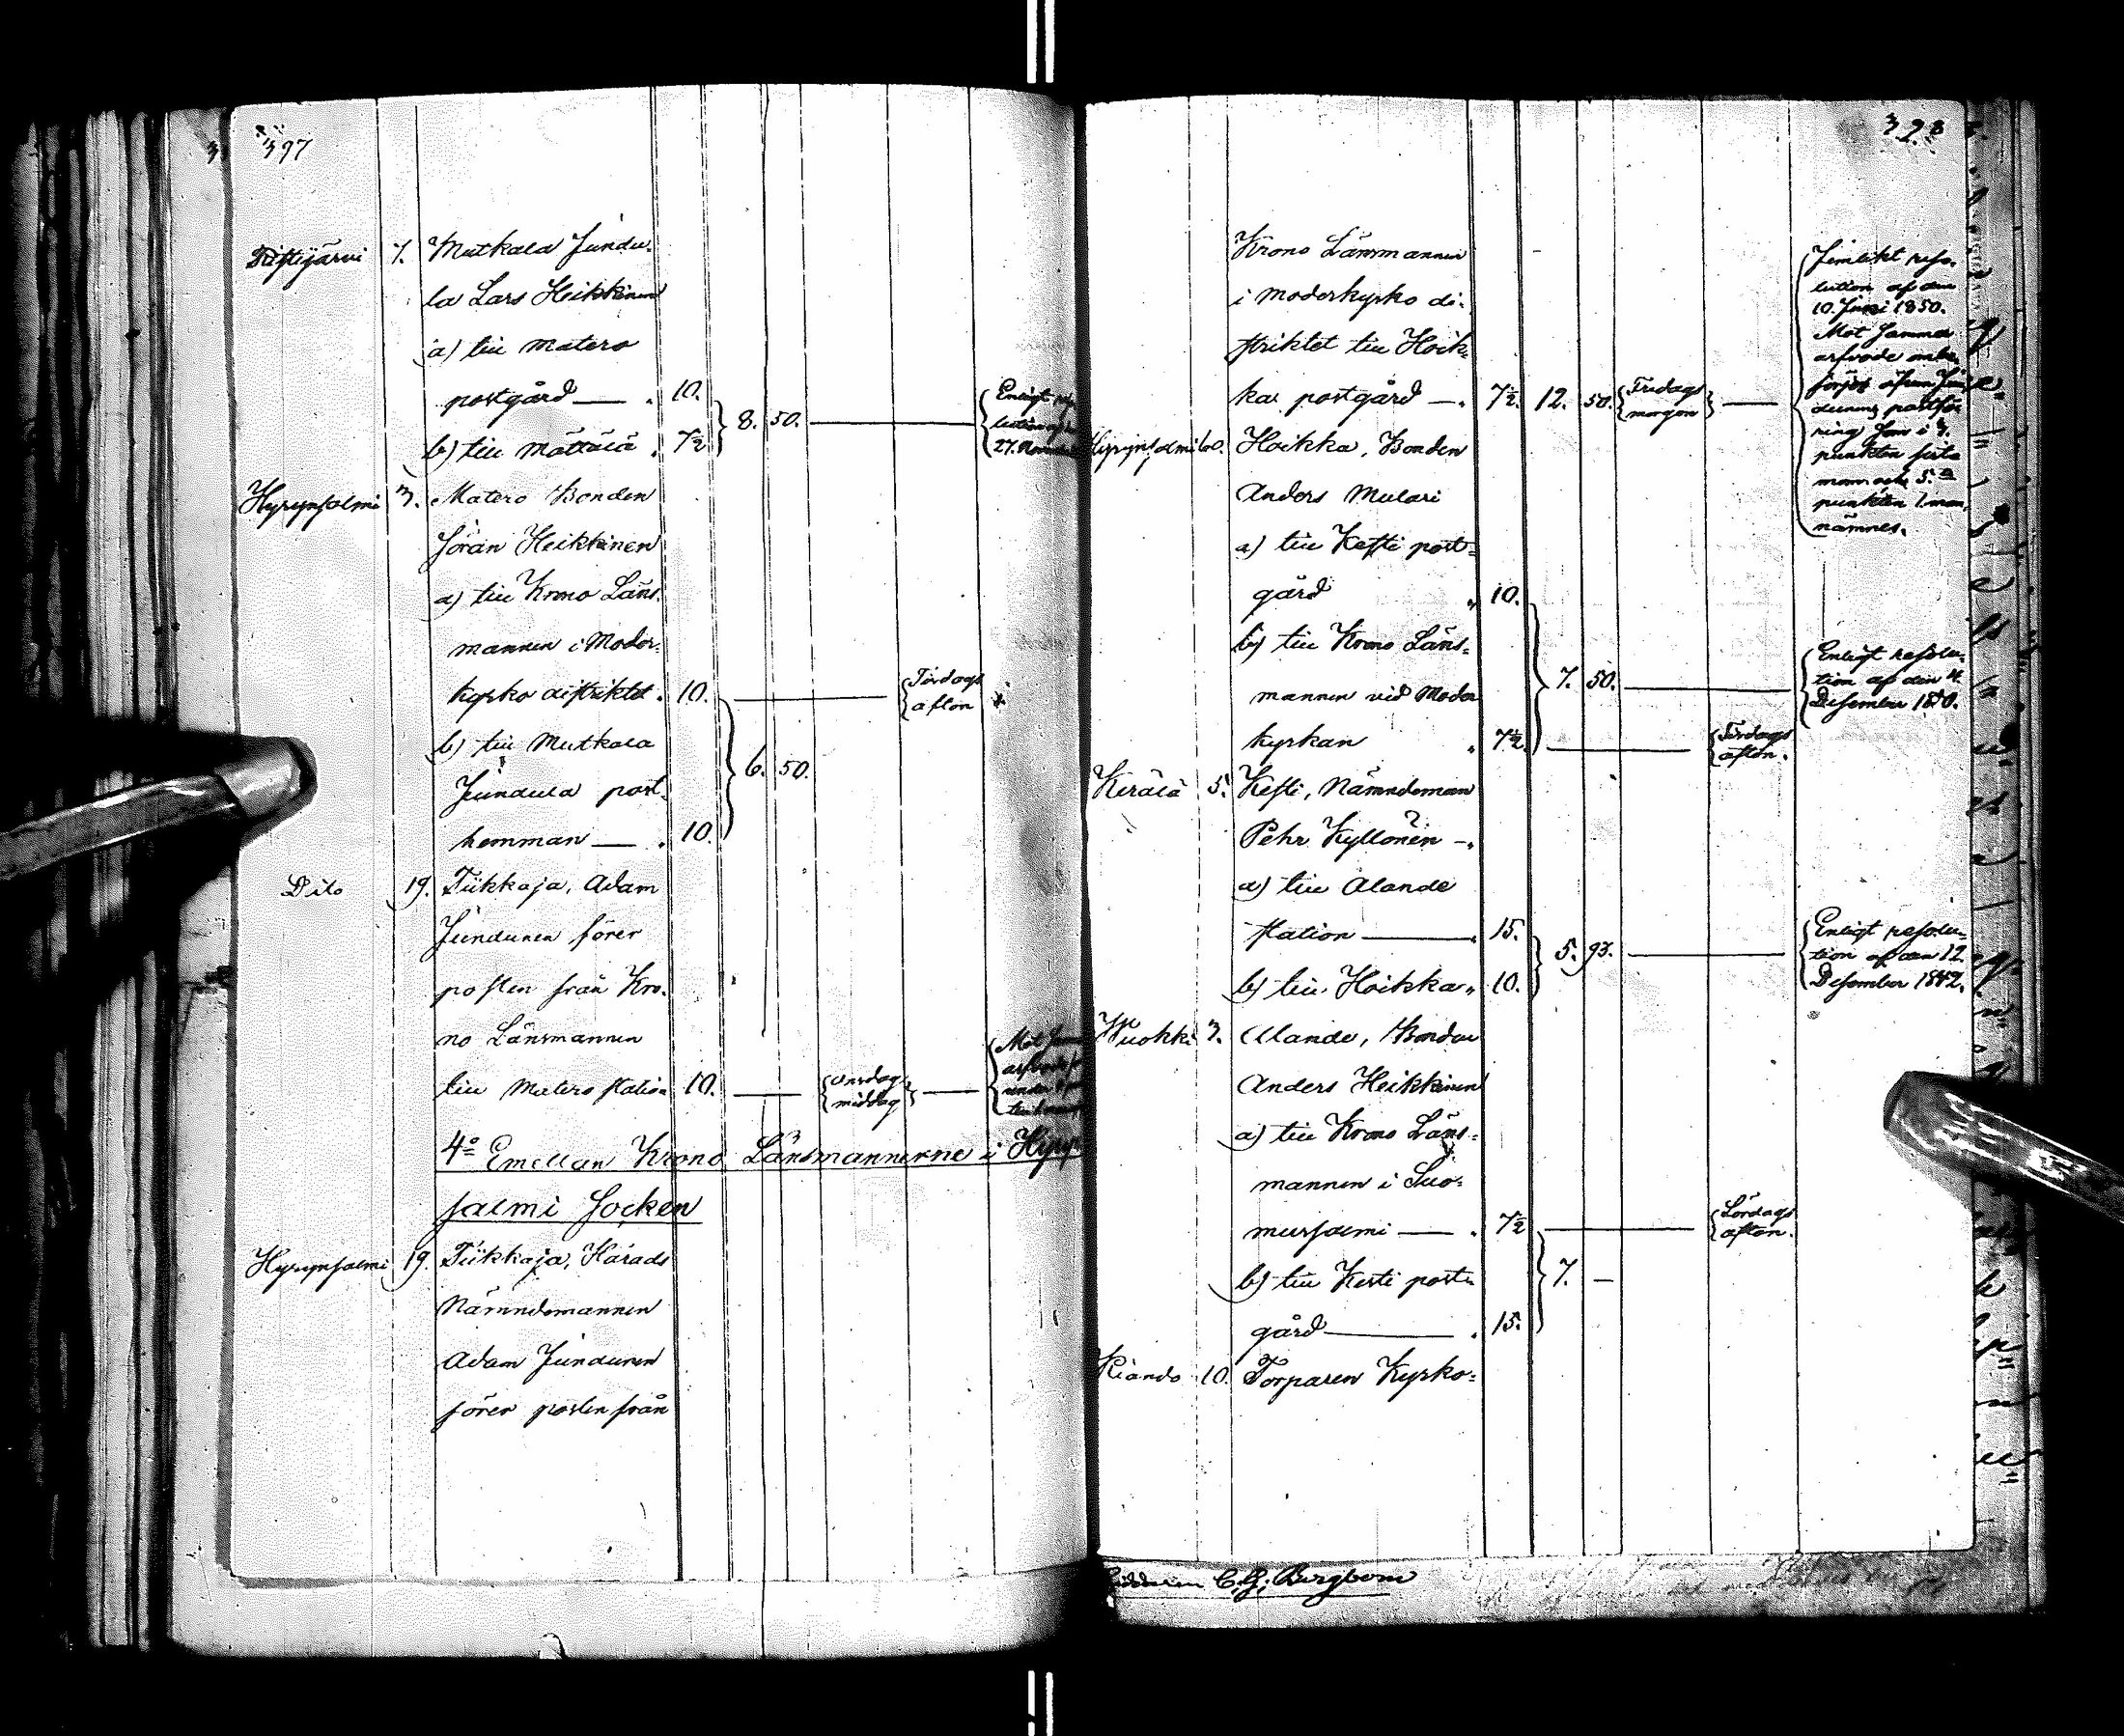 397
Ristijärvi 7. Mutkala Jundu-
la Lars Heikkinen
a) till Matero
postgård — . 10.
b) till Mättälä . 7½ 8. 50. Enligt
27.
Hyrynsalmi 3. Matero Bonden
Jöran Heikkinen
a) till Krono Läns-
mannen i Moder-
kyrko distriktet . 10. Lördags
afton
b) till Mutkala
Jundula post-
hemman — . 10. 6. 50.
Dito 19. Tikkaja, Adam
Jundunen förer
posten från Kro-
no Länsmannen
till Matero station 10. — Onsdag
middag
4o Emellan Krono Länsmännerne i Hyryn
salmi Socken
Hyrynsalmi 19. Tikkaja, Härads
Nämndemannen
Adam Jundunen
förer posten från
398
Krono Länsmannen
i Moderkyrko di-
striktet till Hoik-
ka postgård — . 7½. 12. 50. Fredags
morgon
Jemlikt reso-
lution af den
10 Juni 1850.
Mot samma
arfvode
punkten
punkten 1. man,
nämnes.
Hyrynsalmi Hoikka, Bonden
Anders Mulari
a) till Kesti post-
gård „ 10.
b) till Krono Läns-
mannen vid Moder
kyrkan . 7½ 7. 50. Enligt resolu-
tion af den 4
December
Lördags
afton.
Kerälä 5. Kesti, Nämndeman
Pehr Kyllönen —.
a) till Alande
station — . 15.
b) till Hoikka „ 10. 5. 93. Enligt resolu-
tion af den 12
December 1842.
Wuokki 3. Alande, Bonden
Anders Heikkinen
a) till Krono Läns-
mannen i Suo-
mussalmi — . 7½ Lördags
afton.
b) till Kesti post-
gård — . 15. 7. —
Kiando 10. Torparen Kyrko-
C. G. Bergbom